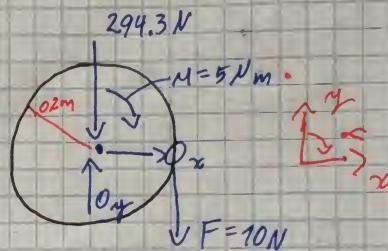 294.3 N
M = 5 Nm.
02m
O x
y
x
O y
F = 10N